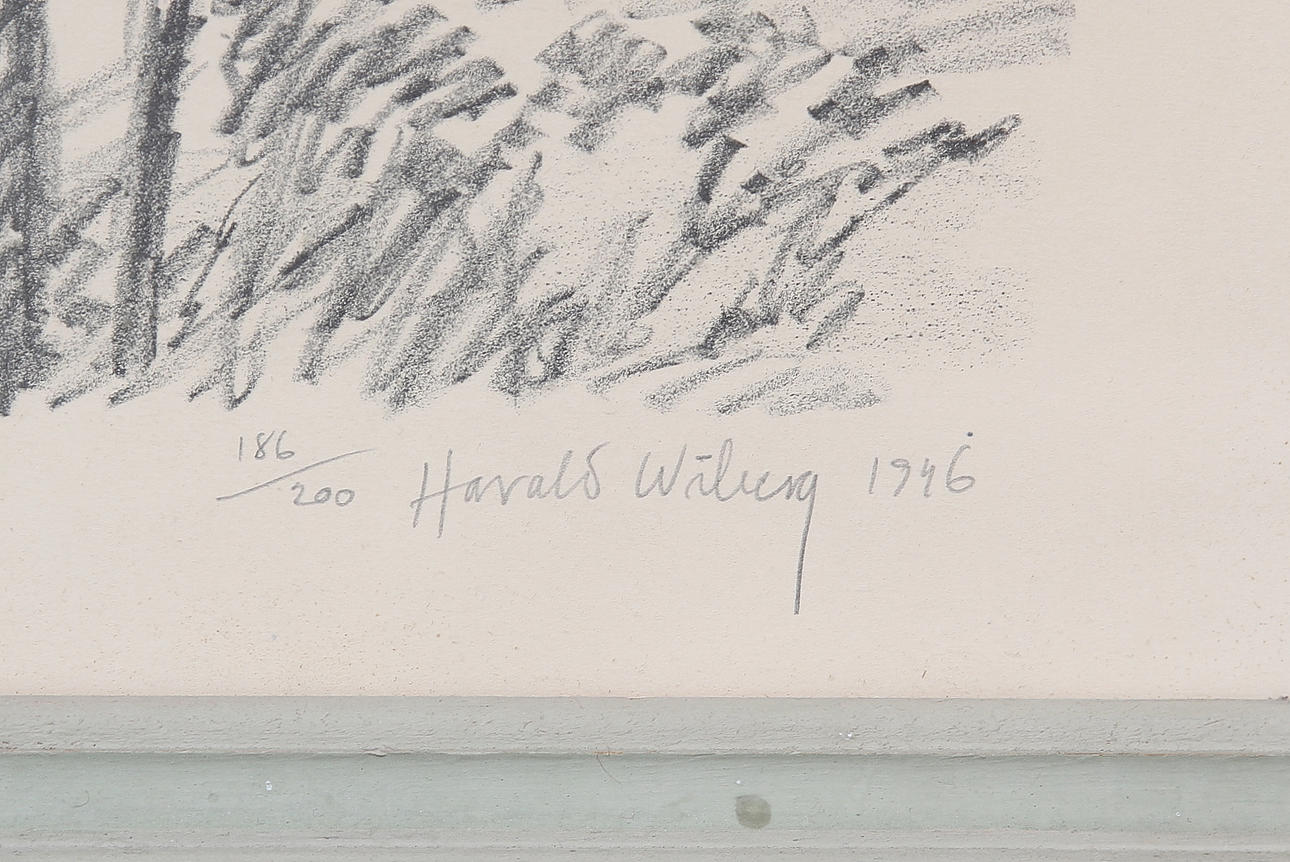 186/200 Harald Wiberg 1946